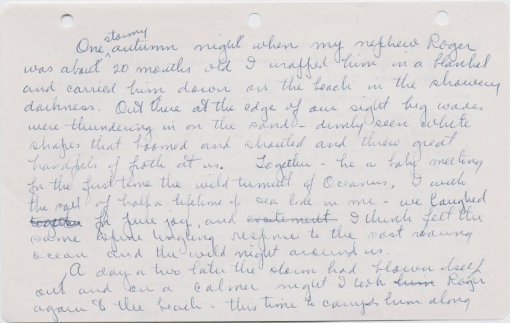 One stormy autumn night when my nephew Roger
was about 20 months old I wrapped him in a blanket
and carried him down on the beach in the showery
darkness. Out there at the edge of our sight big waves
were thundering in on the sand - dimly seen white
shapes that boomed and shouted and threw great
handfuls of froth at us. Together - he a baby meeting
for the first time the wild tumult of Oceanus, I with
the salt of half a lifetime of sea love in me - we laughed
together for pure joy, and excitement I think felt the
same spine tingling response to the vast roaring
ocean and the wild night around us.
A day or two later the storm had blown itself
out and on a calmer night I took him Roger
again to the beach - this time to carry him along